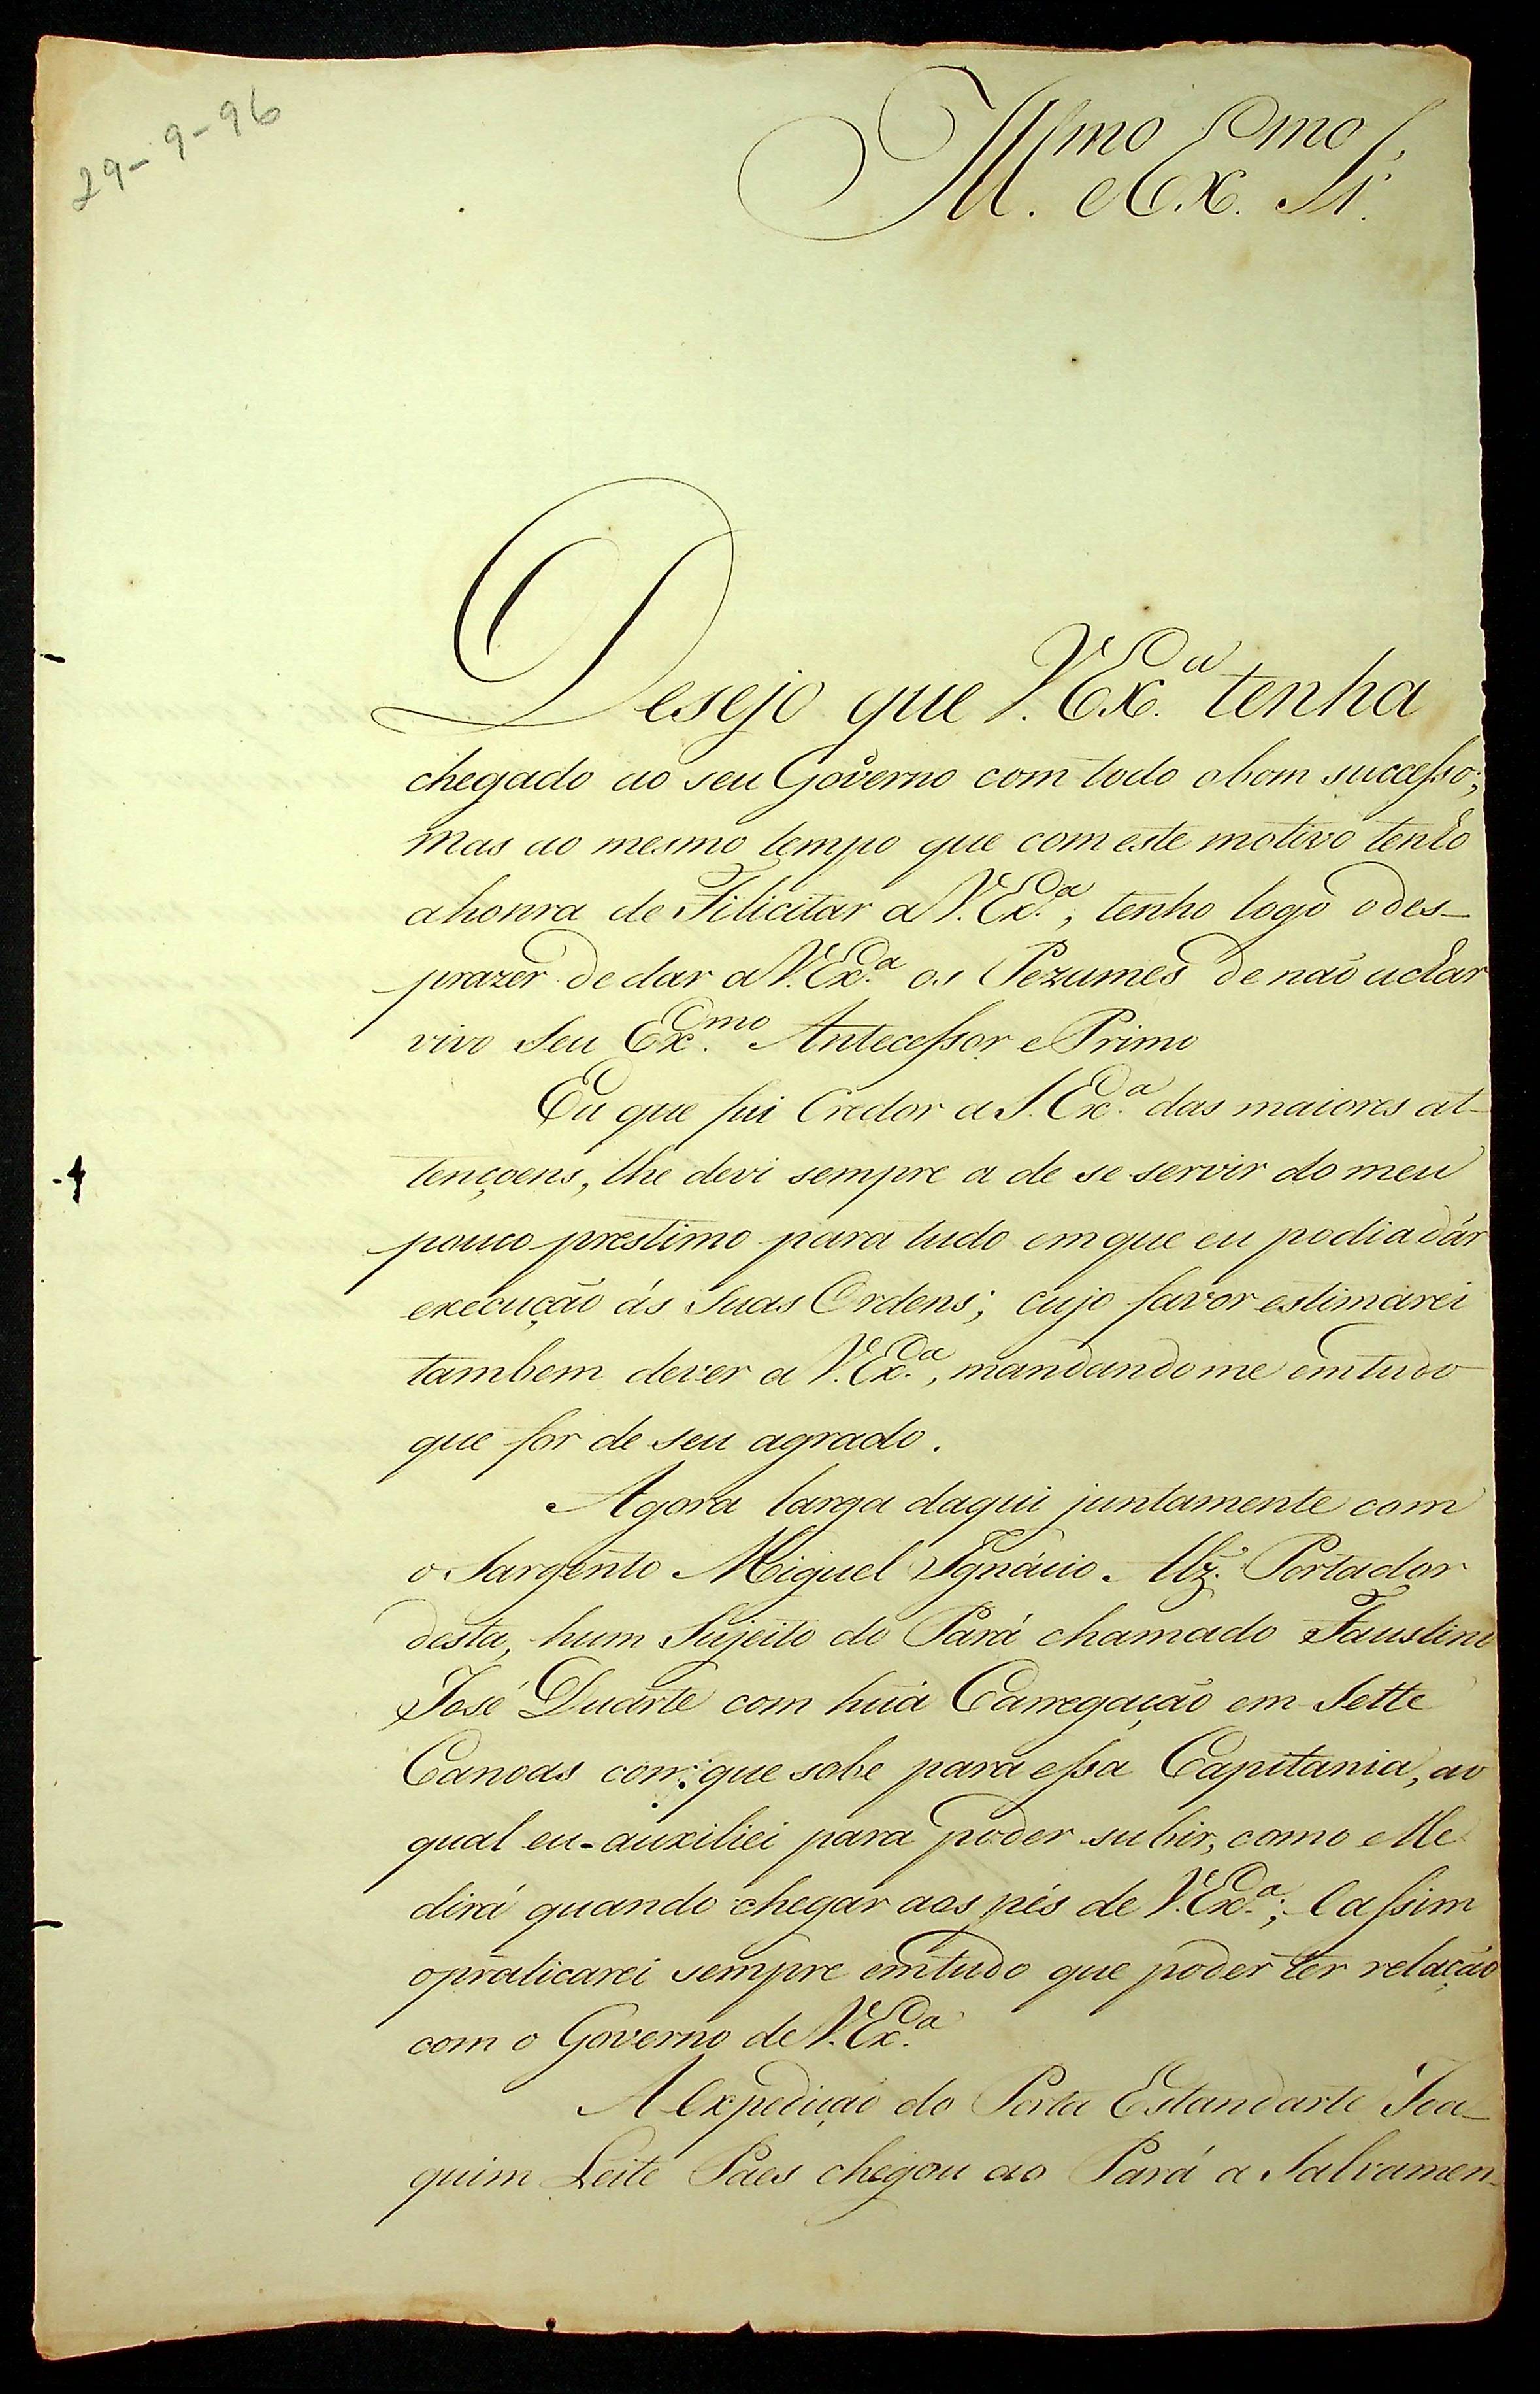 29-9-96
Ill.mo e Ex.mo Sr.
Desejo que V. Ex.a tenha
chegado ao seu Governo com todo o bom successo;
mas ao mesmo tempo que com este motivo tenho
a honra de Filicitar a V. Ex.a, tenho logo o des-
prazer de dar a V. Ex.a os Pezumes de não achar
vivo Seu Ex.mo Antecessor e Primo
Eu que fui Credor a S. Ex.a das maiores at-
tençoens, lhe devi sempre a de se servir do meu
pouco prestimo para tudo em que eu podia dár
execução ás Suas Ordens; cujo favor estimarei
tambem dever a V. Ex.a, mandandome em tudo
que for de seu agrado.
Agora larga daqui juntamente com
o Sargento Miguel Ignácio Alz. Portador
desta, hum Sujeito do Pará chamado Faustino
José Duarte com huá Carregação em Sette
Canoas com que sobe para essa Capitania, ao
qual eu auxiliei para poder subir, como elle
dirá quando chegar aos pés de V. Ex.a; E assim
o praticarei sempre em tudo que poder ter relação
com o Governo de V. Ex.a
A Expedição do Porta Estandarte Joa-
quim Leite Paes chegou ao Pará a Salvamen-